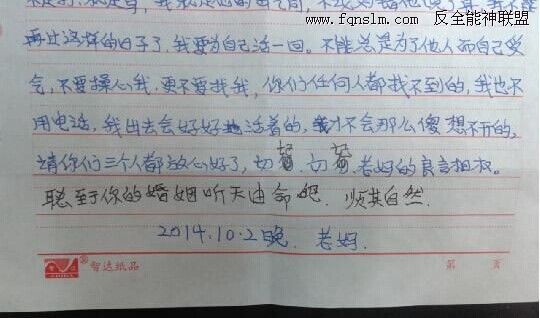 www.fqnslm.com 反全能神联盟
再过这样的日子了,我要为自己活一回。不能总是为了他人而自己受
气,不要操心我,更不要找我,你们任何人都找不到的,我也不
用电话,我出去会好好地活着的,我才不会那么傻想不开的,
请你们三个人都放心好了,切 切 老妈的良言相权。
聪至于你的婚姻听天由命吧.顺其自然.
2014.10.2晚. 老妈.
智选纸品
第 页